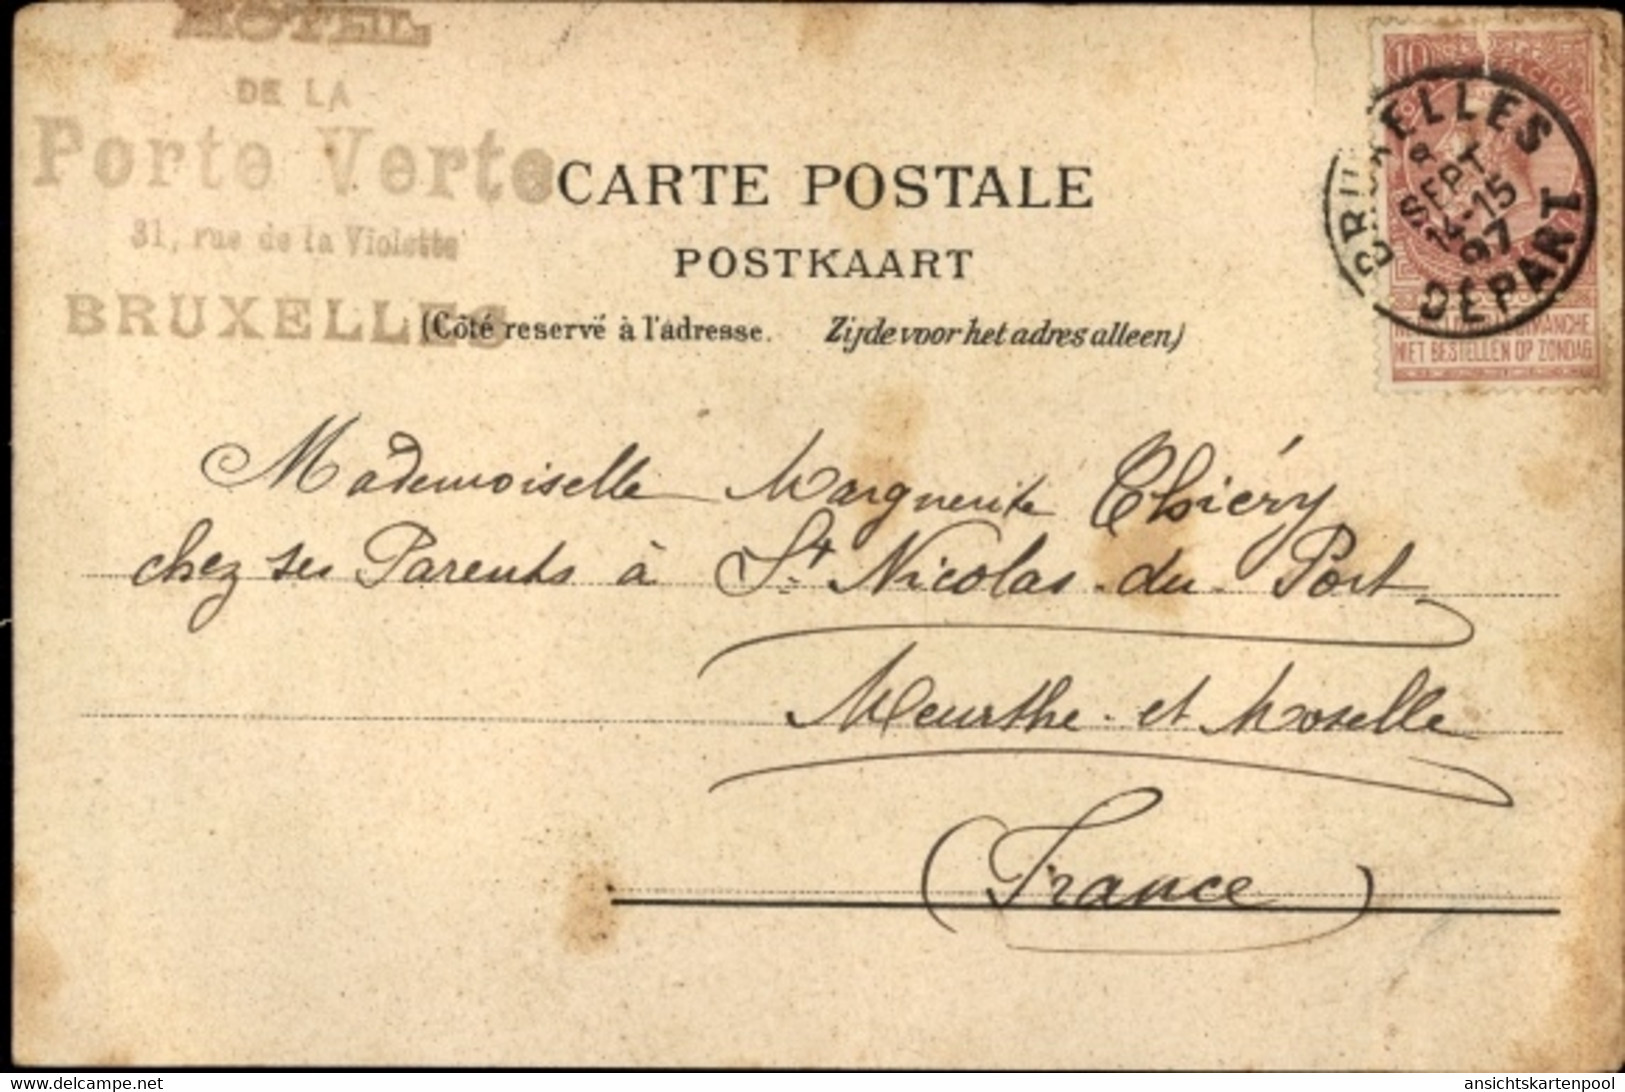 HOTEL
DE LA
Porte Verte
31, rue de la Violette
BRUXELLES
CARTE POSTALE
POSTKAART
(Côté reservé à l'adresse. Zijde voor het adres alleen)
10
BELGIQUE
BRUXELLES
8
SEPT
15
97
DEPART
NIET BESTELLEN OP ZONDAG
Mademoiselle Marguerite Thiéry
chez ses Parents à St. Nicolas-du-Port
Meurthe-et Moselle
(France)
https://www.delcampe.net
ansichtskartenpool